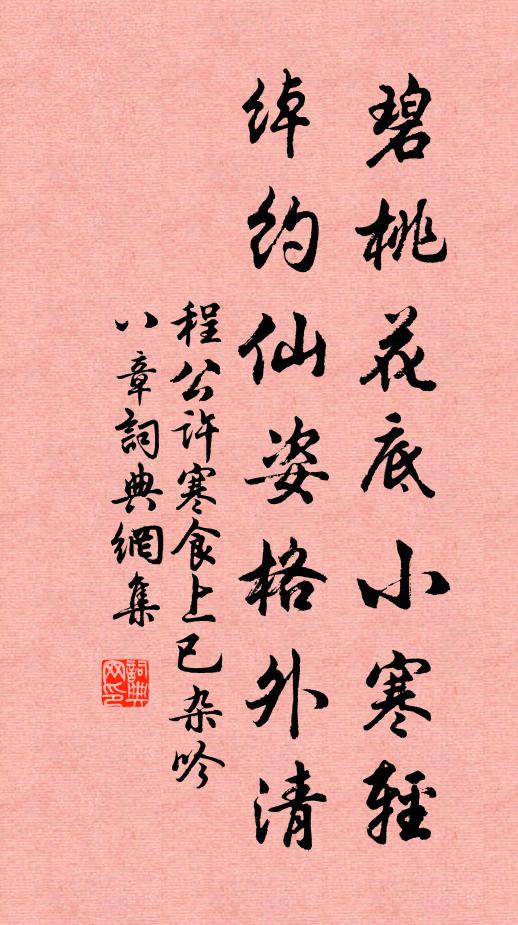 碧桃花底小寒輕
綽約仙姿格外清
程公许寒食上巳杂吟
八章詞典網集
詞典网印